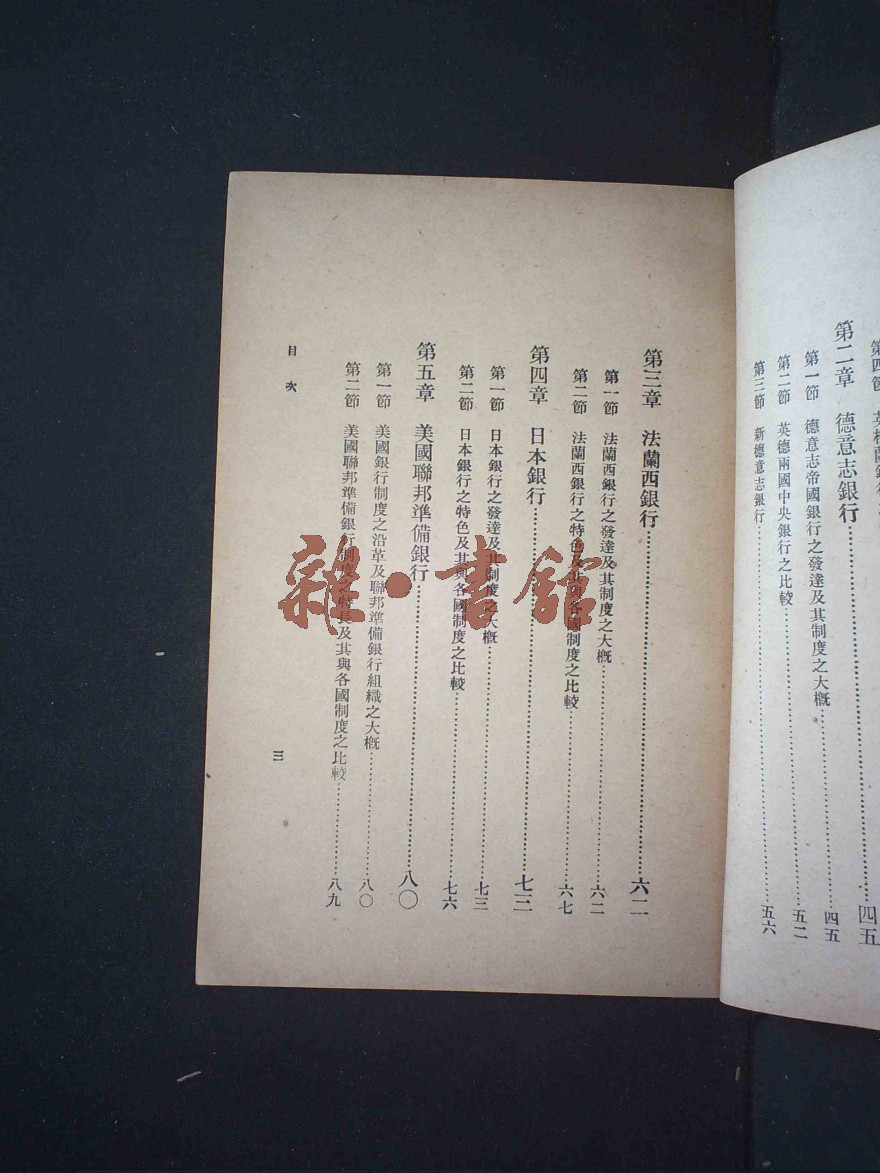 第二章 德意志銀行……四五
第一節 德意志帝國銀行之發達及其制度之大概……四五
第二節 英德兩國中央銀行之比較……五二
第三節 新德意志銀行……五六
第三章 法蘭西銀行……六二
第一節 法蘭西銀行之發達及其制度之大概……六二
第二節 法蘭西銀行之特色及其與各國制度之比較……六七
第四章 日本銀行……七三
第一節 日本銀行之發達及其制度之大概……七三
第二節 日本銀行之特色及其與各國制度之比較……七六
第五章 美國聯邦準備銀行……八〇
第一節 美國銀行制度之沿革及聯邦準備銀行組織之大概……八〇
第二節 美國聯邦準備銀行制度之特長及其與各國制度之比較……八九
目次
三
雜·書館